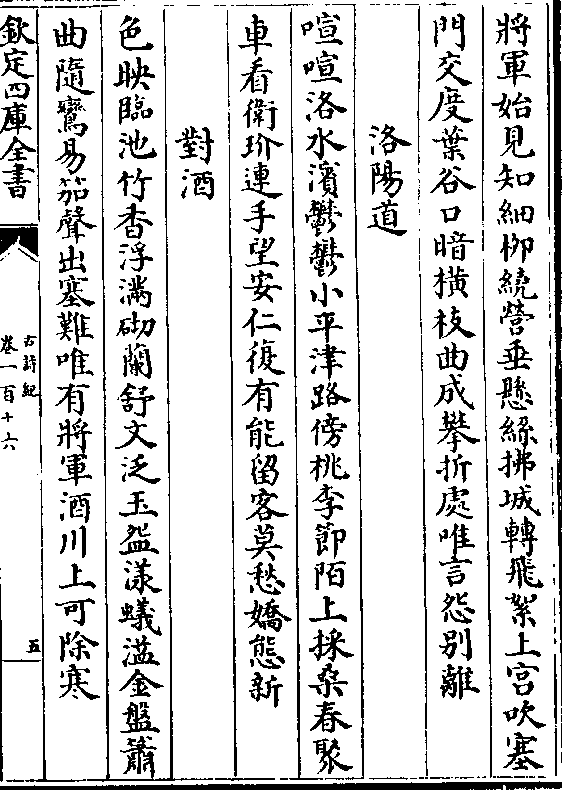 將軍始見知細柳繞營垂懸絲拂城轉飛絮上宮吹塞
門交度葉谷口暗橫枝曲成攀折處唯言怨別離
洛陽道
喧喧洛水濱鬱鬱小平津路傍桃李節陌上採桑春聚
車看衛玠連手望安仁復有能留客莫愁嬌態新
對酒
色映臨池竹香浮滿砌蘭舒文泛玉盌漾蟻溢金盤簫
曲隨鸞易笳聲出塞難唯有將軍酒川上可除寒
欽定四庫全書
古詩紀
卷一百十六
五